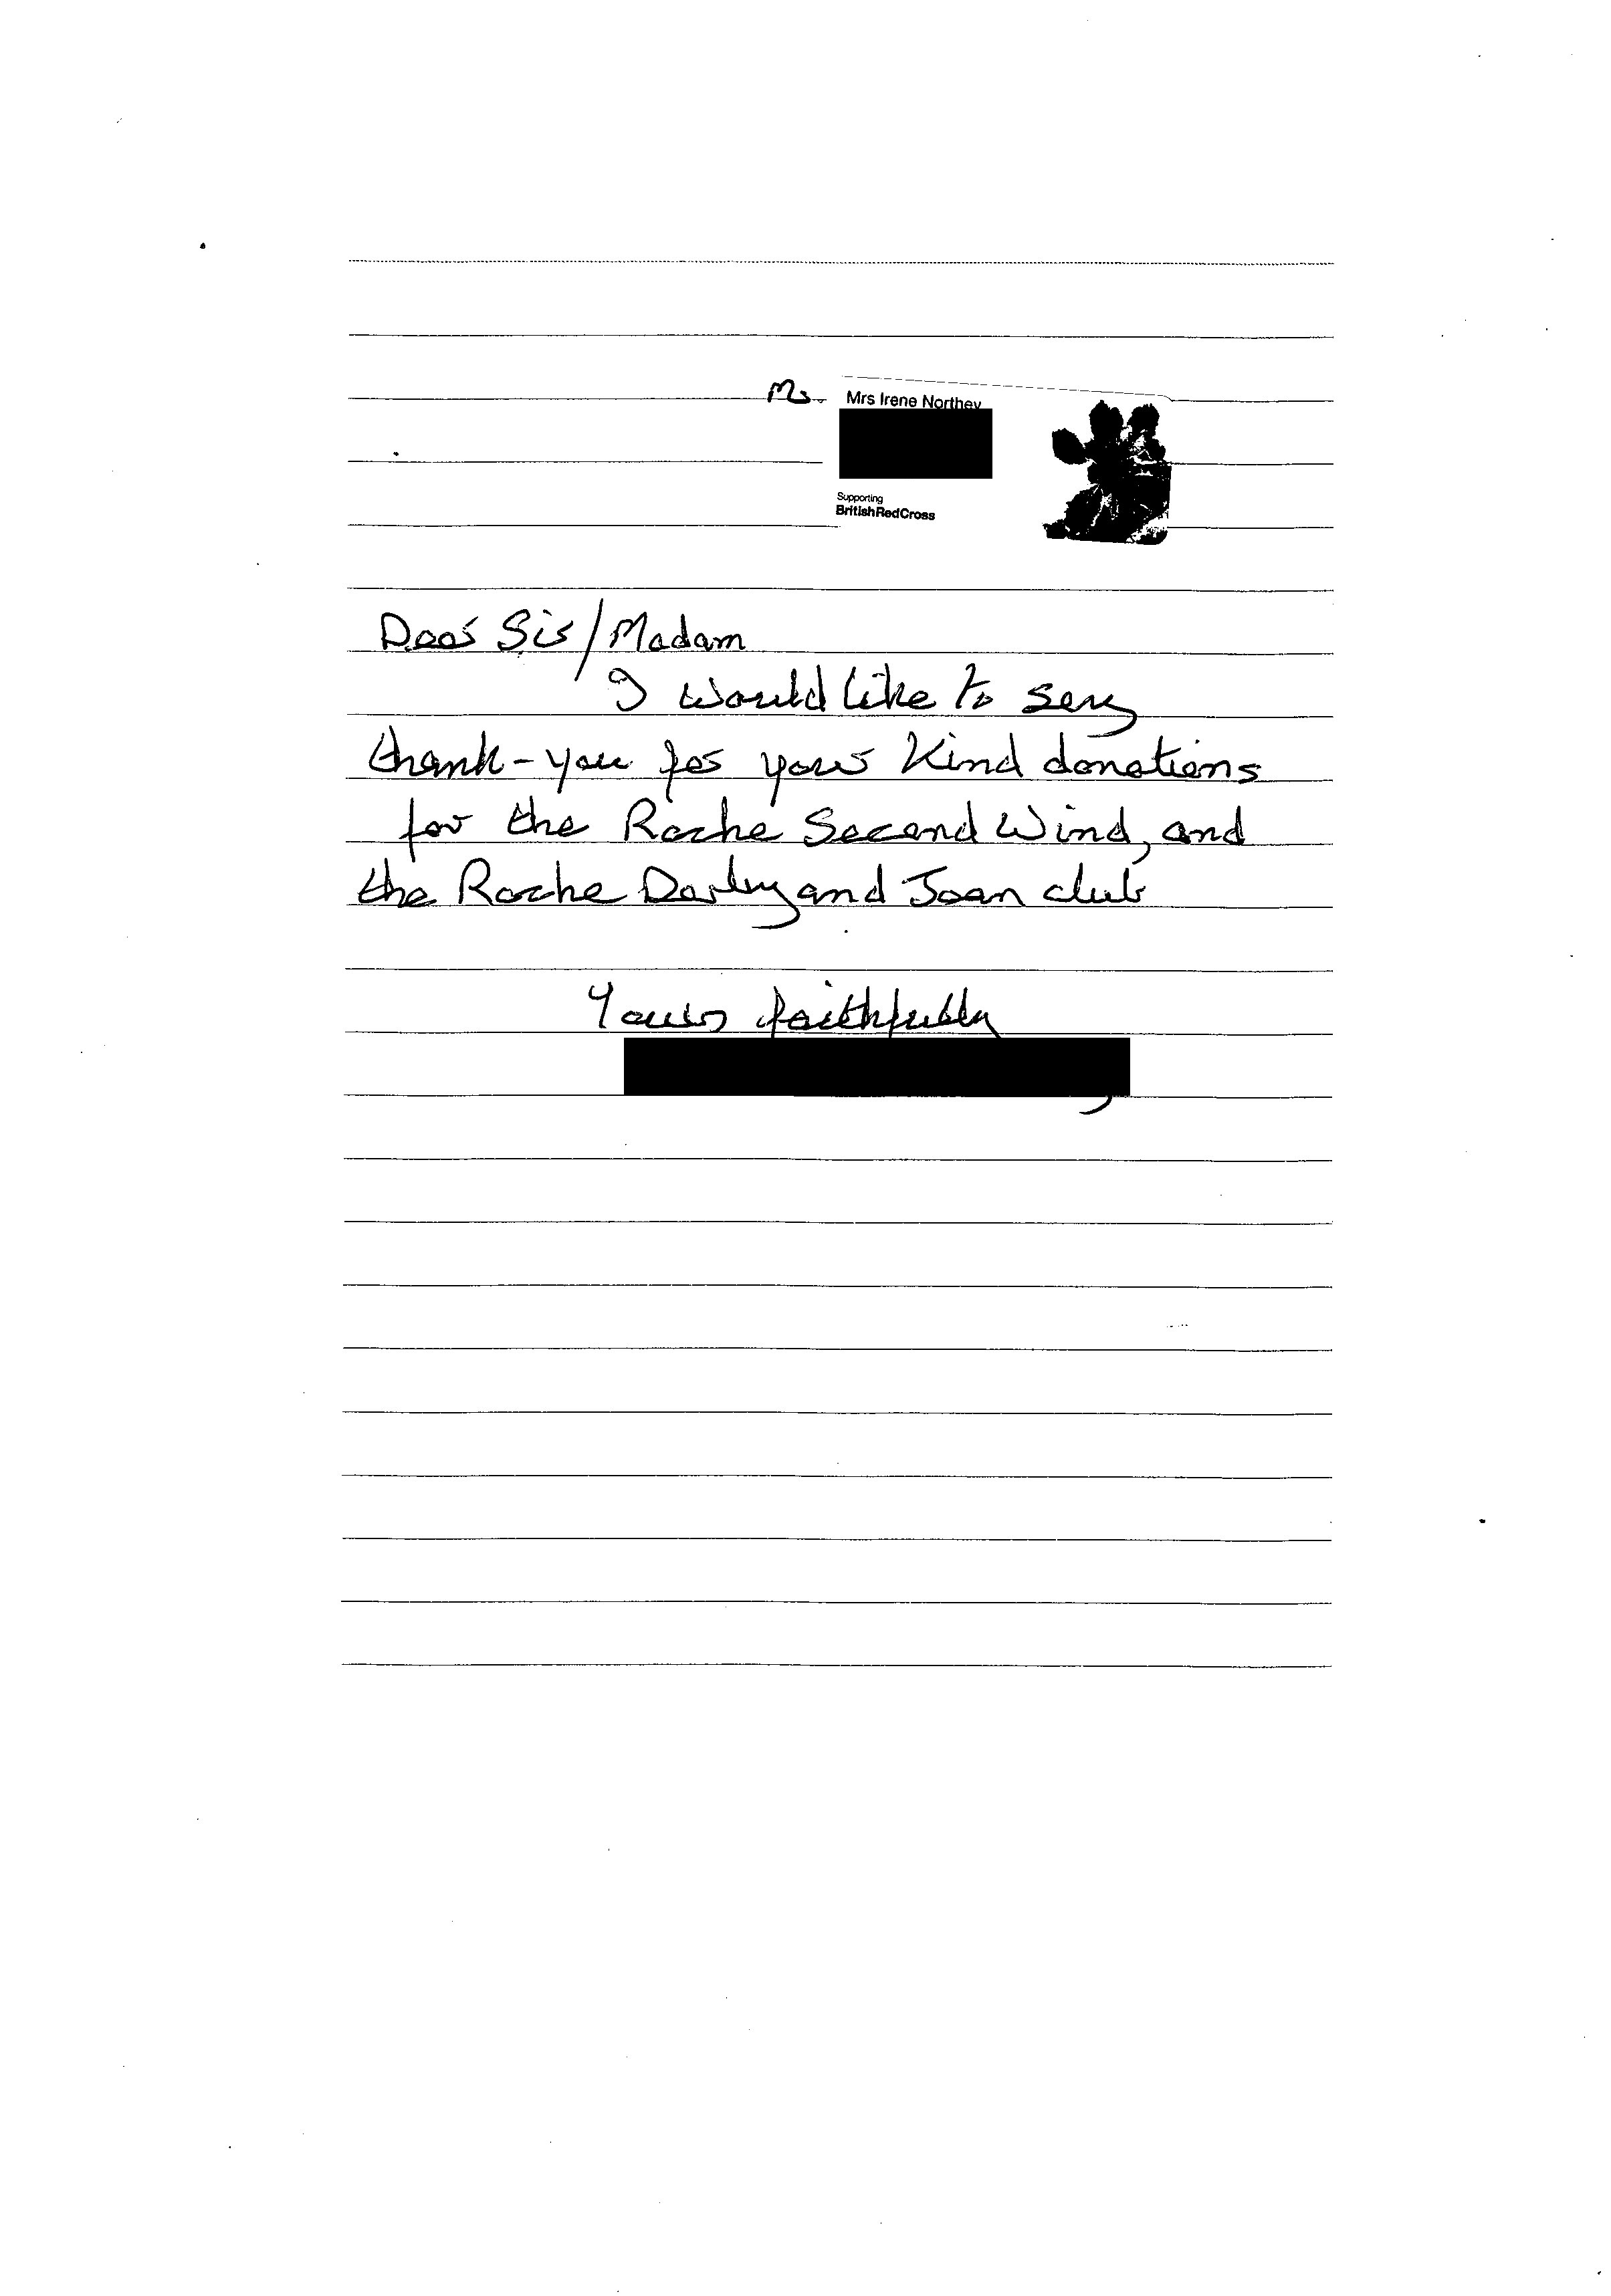 Mr. Mrs Irene Northey
Supporting
BritishRedCross
Dear Sir/Madam
I would like to say
thank-you for your kind donations
for the Roche Second Wind, and
the Roche Darby and Joan club
Yours faithfully